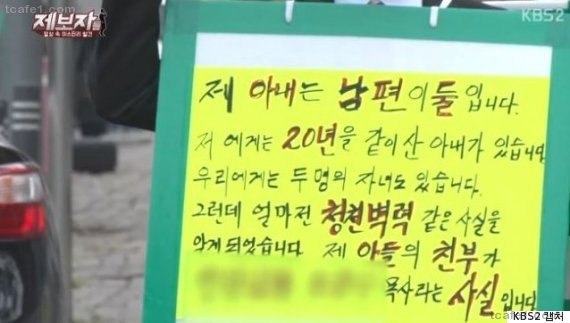 tcafe1.com
제보자들
일상 속 미스터리 발견
tcafe1.com
KBS2
제 아내는 남편이 둘 입니다.
저 에게는 20년을 같이 산 아내가 있습니다
우리에게는 두 명의 자녀도 있습니다.
그런데 얼마전 청천벽력 같은 사실을
알게 되었습니다. 제 아들의 친부가
목사라는 사실 입니다
KBS2 캡처